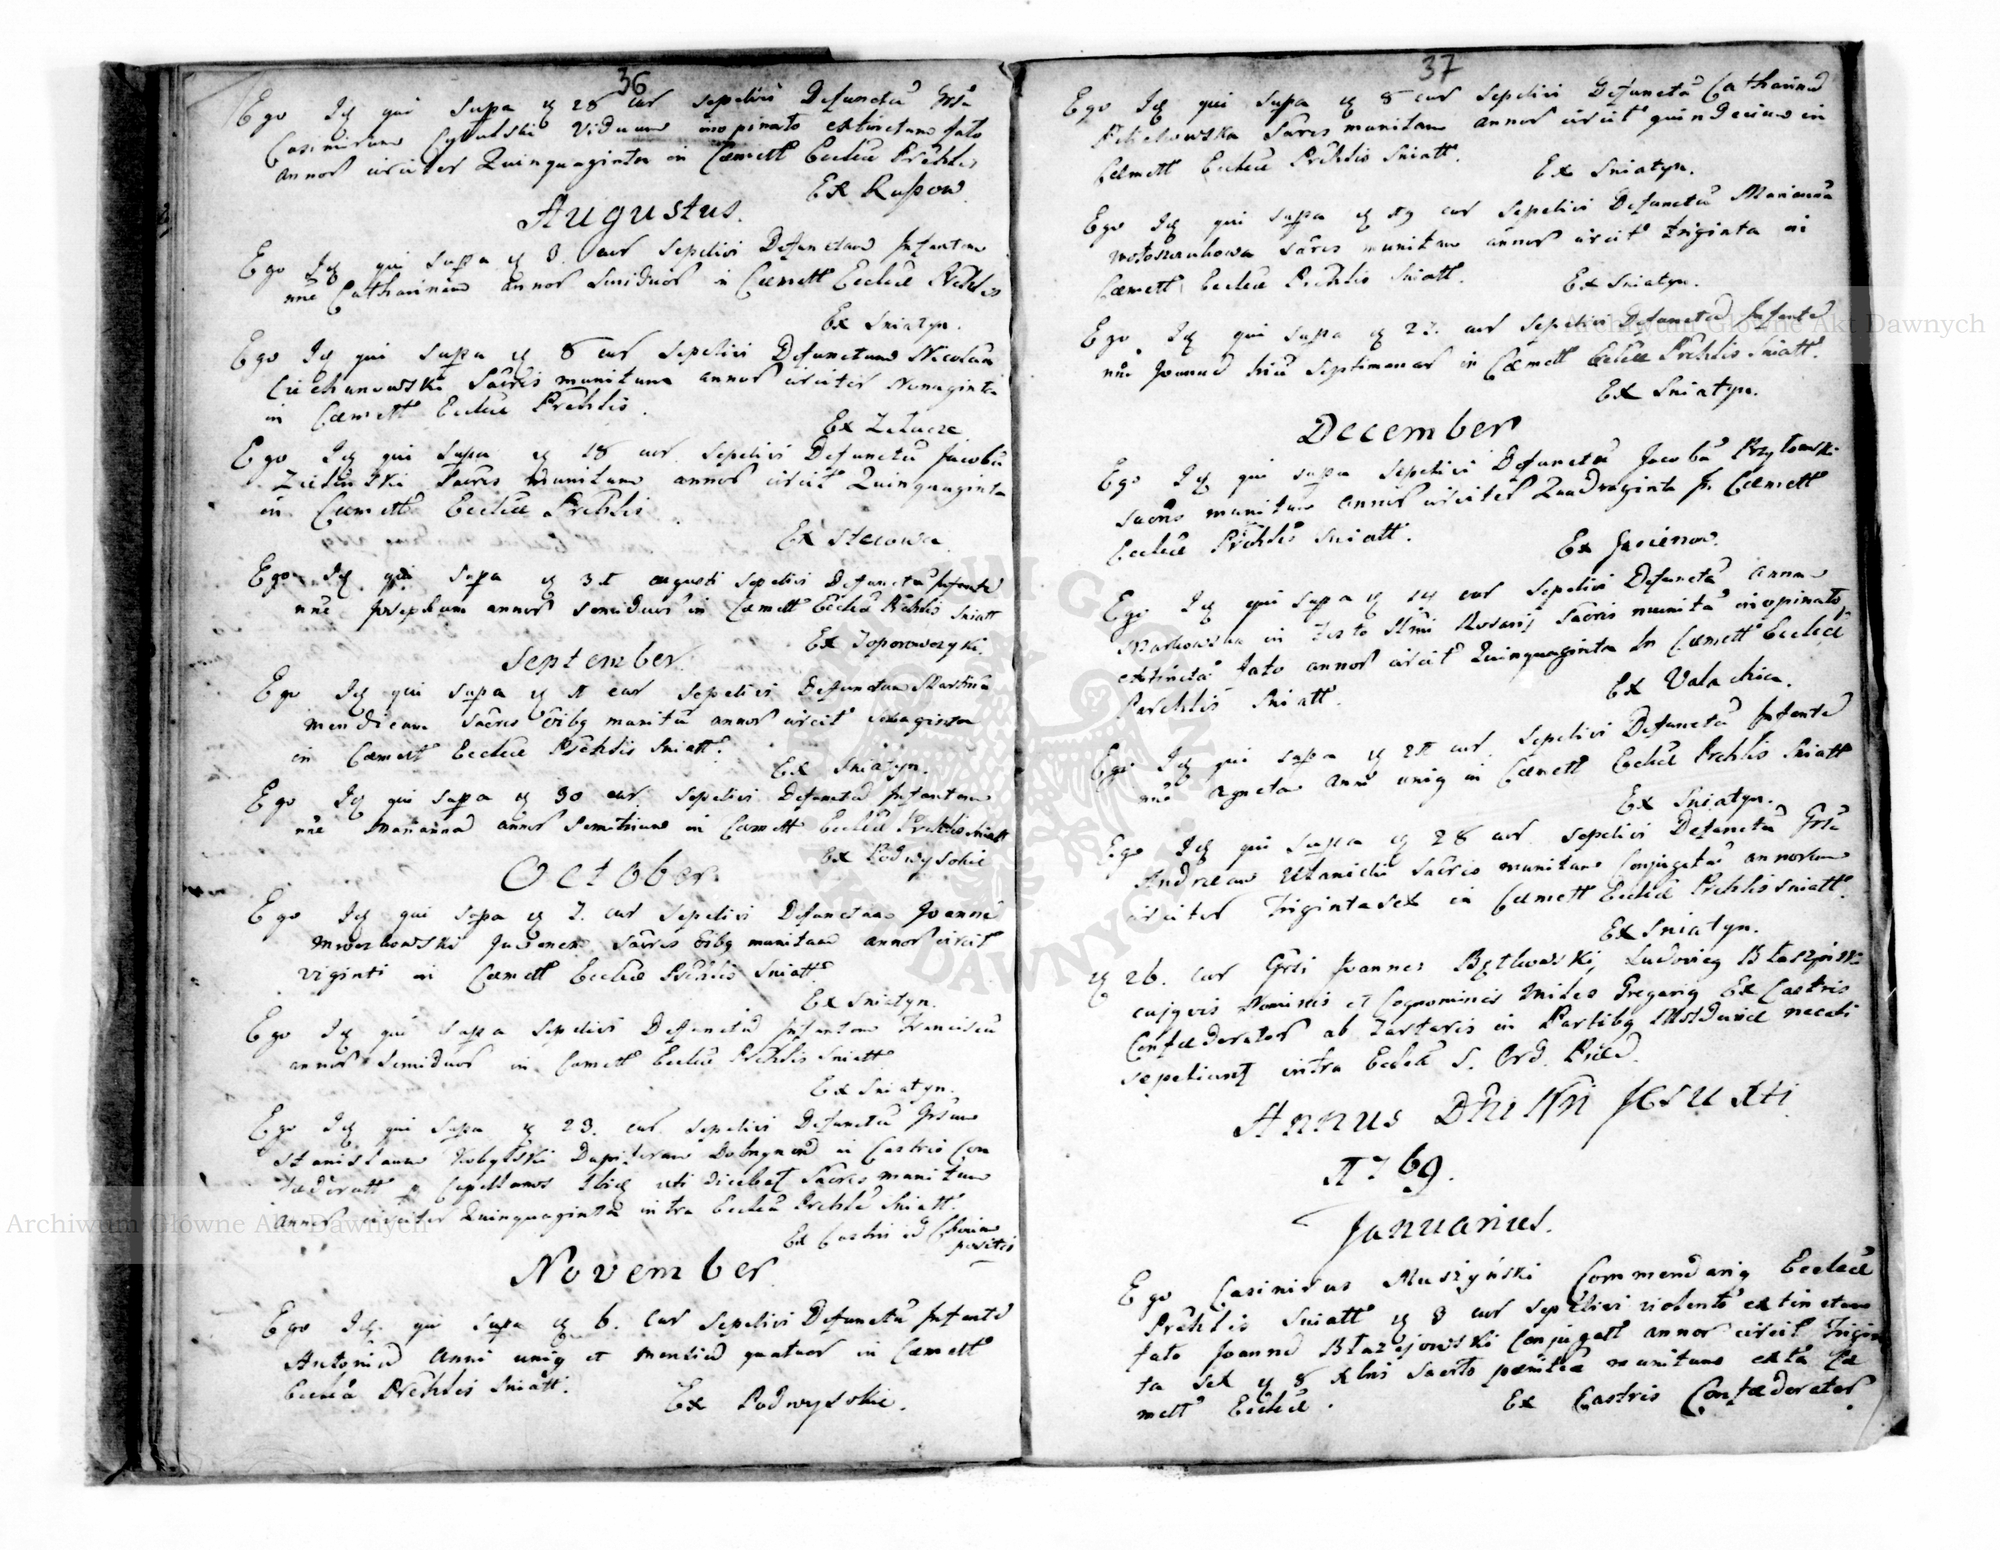 36
Ego Idq qui supa q 28 cur sepelivi Defunctu Grsu
Casimirum Cybulski Viduum inopinato extinctum fato
annor circiter Quinquaginta in Cæmett Ecclæ Prchlis
Ex Rusow.
Augustus.
Ego Idq qui supa q 3. cur sepelivi Defunctam Infantem
nne Catharinam annor semiduor in Cæmett Ecclæ Prchlis
Ex Sniatyn.
Ego Idq qui supa q 8 cur sepelivi Defunctum Nicolau
Ciechanowski Sacris munitum annor circiter Nonaginta
in Cæmett Ecclæ Prchlis.
Ex Zelucze
Ego Idq qui supa q 18 cur sepelivi Defunctu Jacobu
Zielinski Sacris munitum annor circit Quinquaginta
in Cæmett Ecclæ Prchlis.
Ex Stecowa
Ego Idq qui supa q 31 augusti sepelivi Defunctu Infante
nne Josephum annor semiduor in Cæmett Ecclæ Prchlis Sniatt
Ex Toporowczyki.
September.
Ego Idq qui supa q 11 cur sepelivi Defunctum Martinu
mendicum sacris oibq munitu annor circit sexaginta
in Cæmett Ecclæ Prchlis Sniatt.
Ex Sniatyn.
Ego Idq qui supa q 30 cur sepelivi Defunctu Infantem
nne Marianna annor semitrium in Cæmett Ecclæ Prchlis Sniatt
Ex Podwysokie
October.
Ego Idq qui supa q 7. cur sepelivi Defunctum Joanne
Mroczkowski Juvenem Sacris oibq munitum annor circit
viginti in Cæmett Ecclæ Prchlis Sniatt.
Ex Sniatyn.
Ego Idq qui supa sepelivi Defunctu Infantem Franciscu
annor semiduor in Cæmett Ecclæ Prchlis Sniatt
Ex Sniatyn.
Ego Idq qui supa q 23. cur sepelivi Defunctu Grsum
Stanislaum Kobylski Dapiferum in Castris Con
fæderatt Capellanus uti dicebat Sacris munitum
annor circiter Quinquaginta intra Ecclæ Prchle Sniatt.
Ex Castris
positis
November
Ego Idq. qui supa q 6. cur sepelivi Defunctu Infante
Antoniu Anni uniq et mensiu quatuor in Cæmett
Ecclæ Prchlis Sniatt.
Ex Podwysokie.
37
Ego Idq qui supa q 8 cur sepelivi Defunctu Catharina
Sacris munitam annor circit quindecim in
Cæmett Ecclæ Prchlis Sniatt.
Ex Sniatyn.
Ego Idq qui supa q 19 cur sepelivi Defunctu Marianna
Sacris munitam annor circit triginta in
Cæmett Ecclæ Prchlis Sniatt.
Ex Sniatyn.
Ego Idq qui supa q 27. cur sepelivi Defunctu Infante
nne Joanne triu Septimanar in Cæmett Ecclæ Prchlis Sniatt.
Ex Sniatyn.
December
Ego Idq qui supa sepelivi Defunctu Jacobu Przyłomski
Sacris munitum annor circiter Quadraginta In Cæmett
Ecclæ Prchlis Sniatt.
Ex Jasienow.
Ego Idq qui supa q 14 cur sepelivi Defuncta Annam
Markowska in Festo SSmi Rosarij Sacris munita inopinato
extincta fato annor circit Quinquaginta In Cæmett Ecclæ
Parchlis Sniatt.
Ex Valachia.
Ego Idq qui supa q 21 cur. sepelivi Defuncta Infante
nne Agneta Anni uniq in Cæmett Ecclæ Prchlis Sniatt
Ex Sniatyn.
Ego Idq qui supa q 28 cur sepelivi Defunctu Grsu
Andream Utanicki Sacris munitum Conjugatu annorum
circiter Triginta sex in Cæmett Ecclæ Prchlis Sniatt.
Ex Sniatyn.
q 26. cur Grsi Joannes Bętkowski, Ludoviq Błaszyński
cujqvis Nominis et Cognominis miles Gregariq Ex Castris
Confæderator ab Tartaris in Partibq Moldaviæ necati
sepeliunt intra Eccla S. Ord. Præd.
Annus Dni Nri Jesu Xti
1769.
Januarius.
Ego Casimirus Muszyński Commendariq Ecclæ
Prchlis Sniatt q 3 cur sepelivi violento extinctum
fato Joanne Błażejowski Conjugatt annor circit Trigin
ta sex q 8 Xbris Sacrto pænitæ munitum extra Cæ
mett Ecclæ.
Ex Castris Confæderator.
Archiwum Główne Akt Dawnych
Archiwum Główne Akt Dawnych
ARCHIWUM GŁÓWNE AKT DAWNYCH